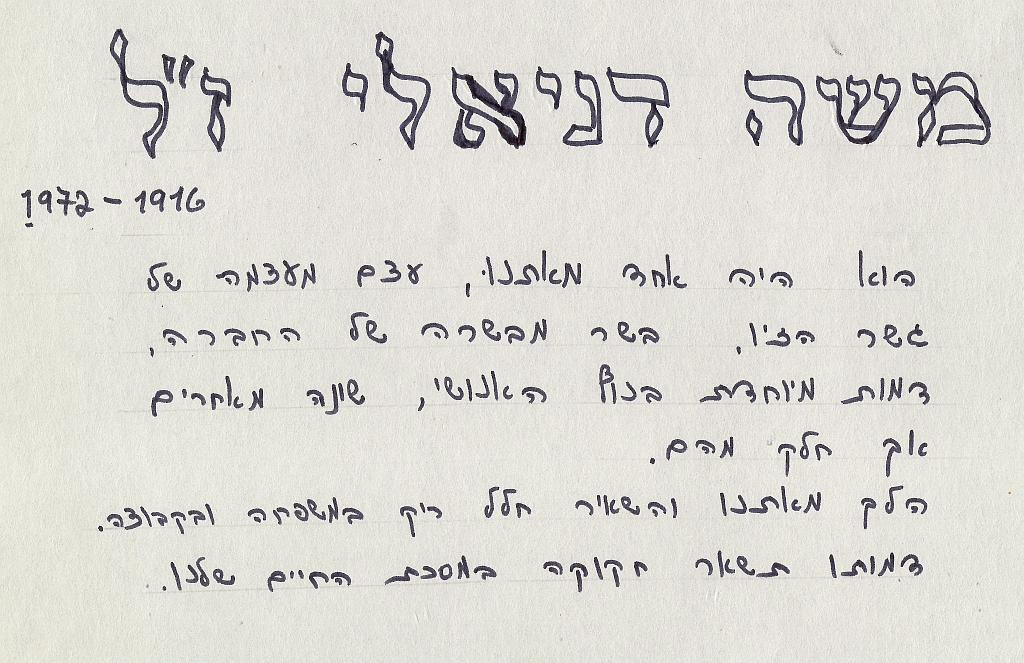 משה דניאלי ז"ל
1972 - 1916
הוא היה אחד מאתנו, עצם מעצמה של
גשר הזיו, בשר מבשרה של החברה,
דמות מיוחדת בנוף האנושי, שונה מאחרים
אך חלק מהם.
הלך מאתנו והשאיר חלל ריק במשפחה ובקבוצה.
דמותו תשאר חקוקה במסכת החיים שלנו.